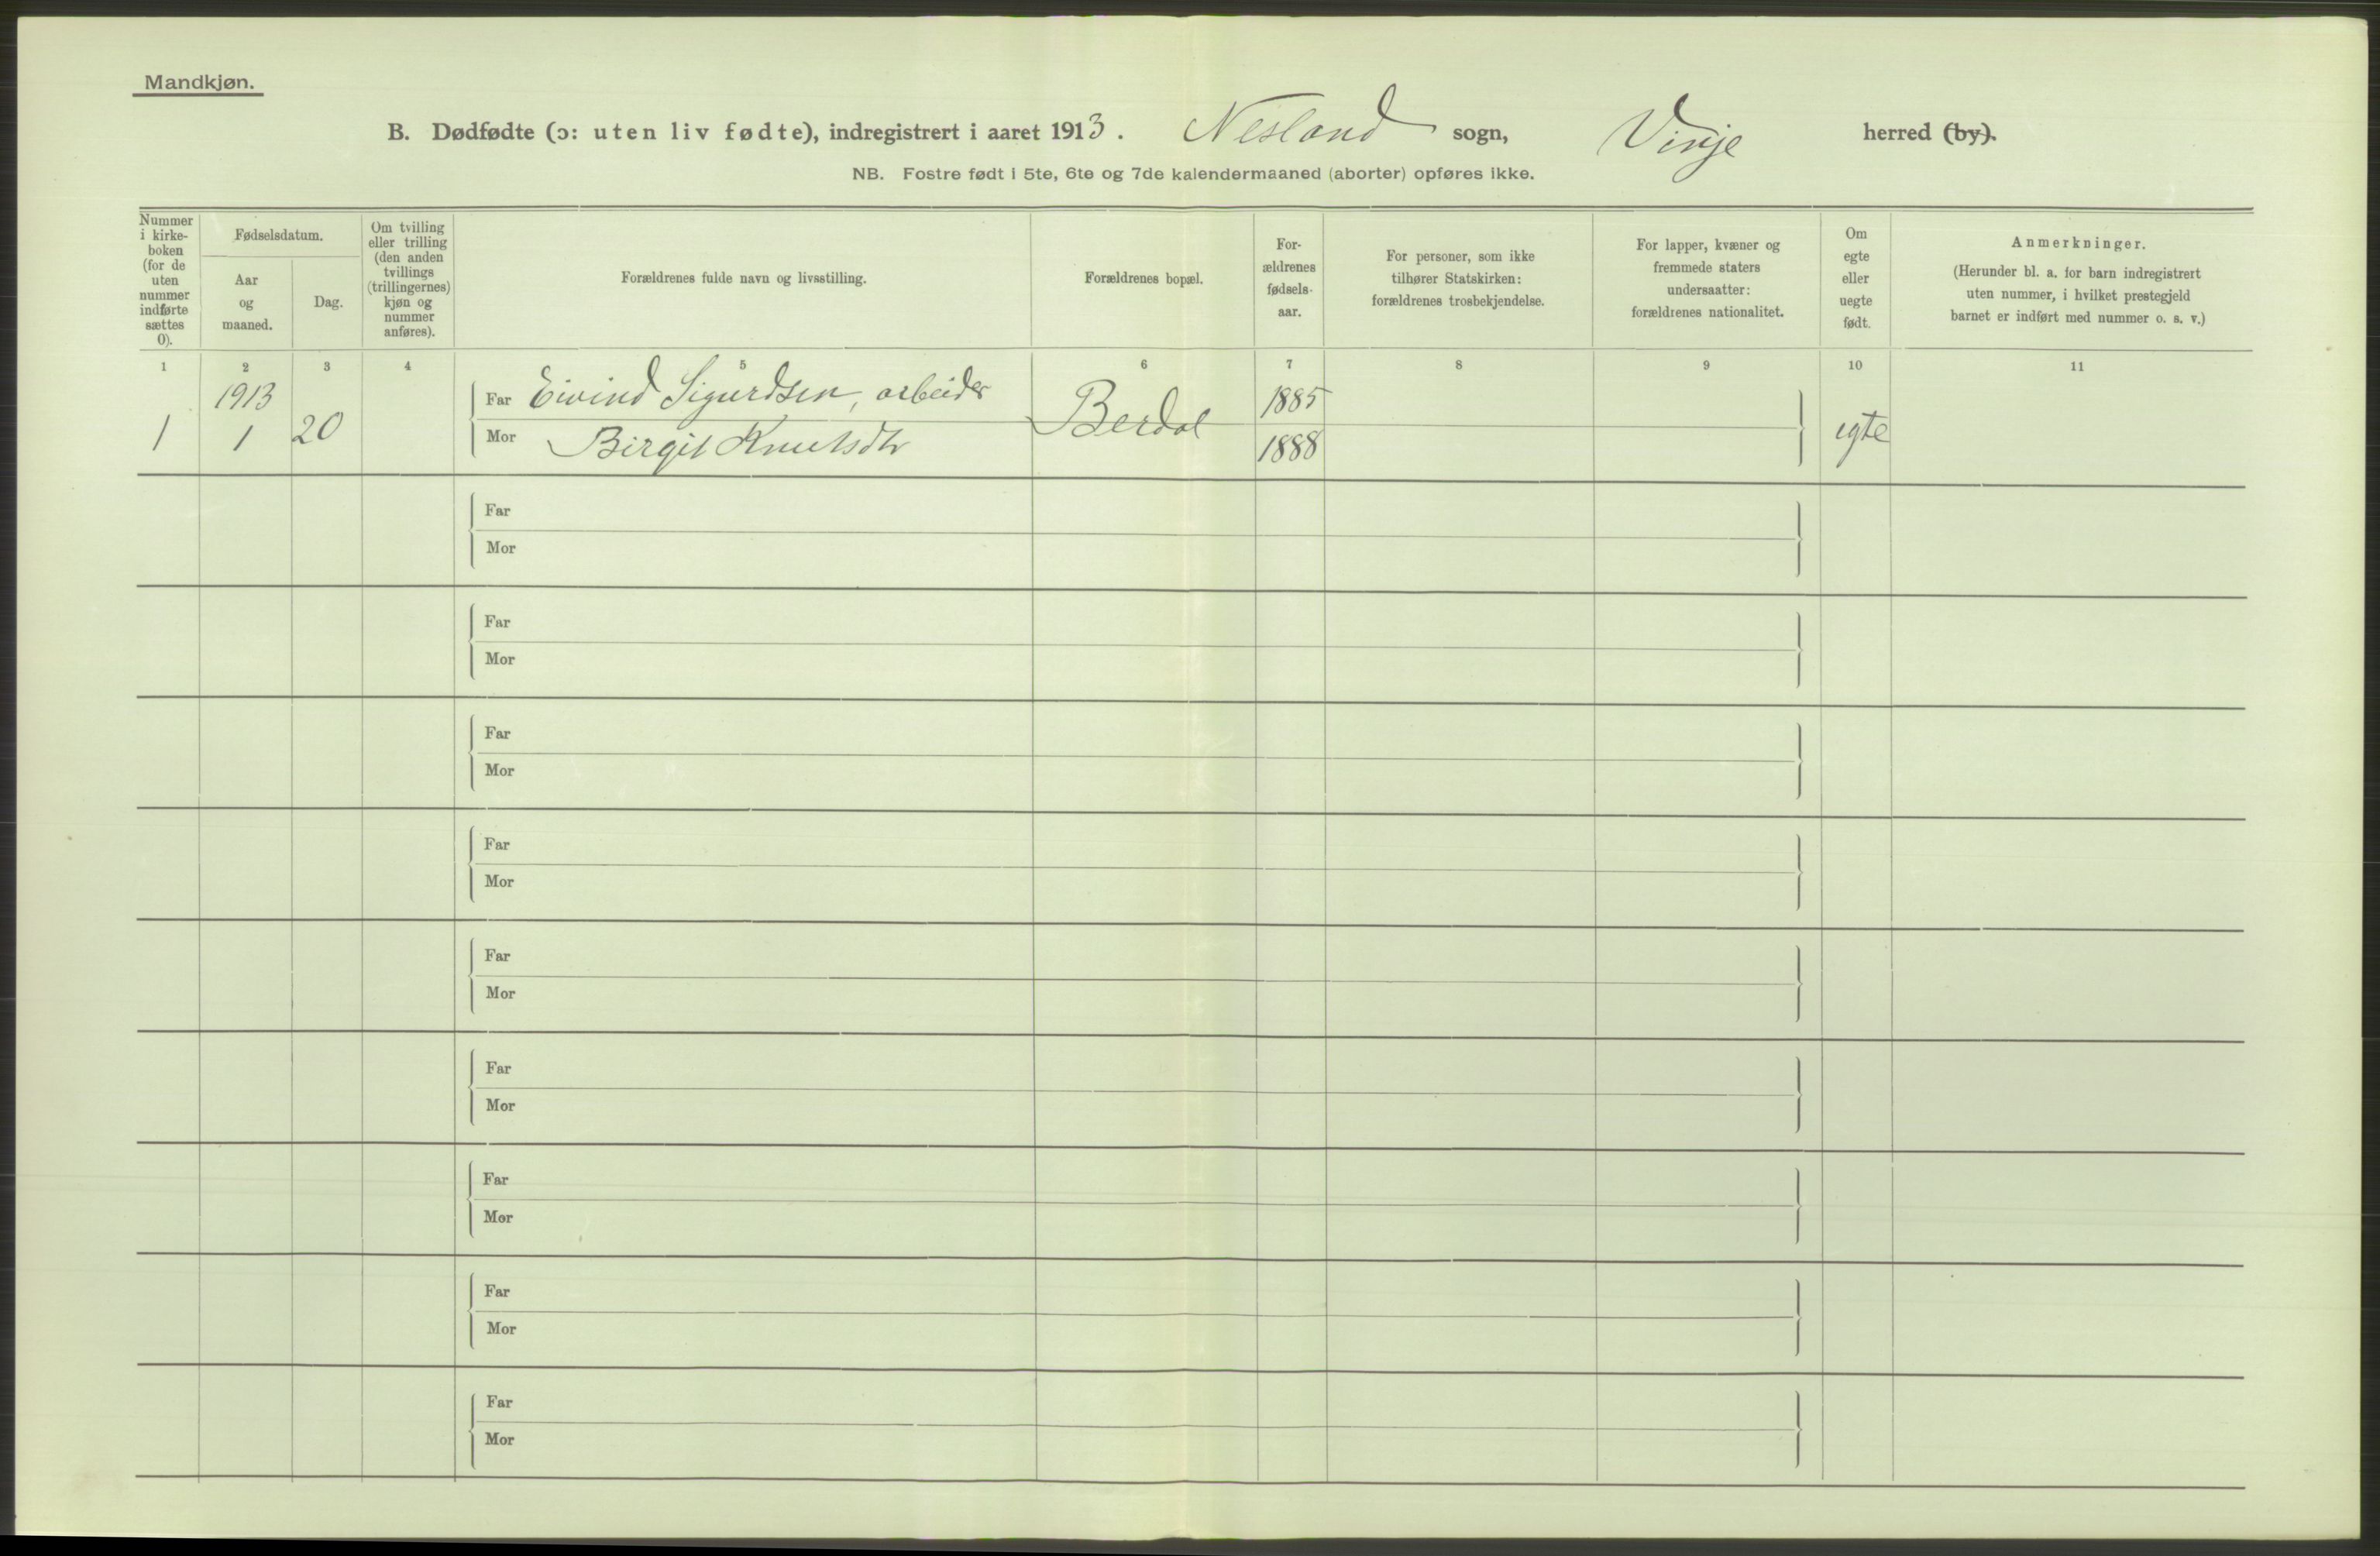 Mandkjøn.
B. Dødfødte (ɔ: uten liv fødte), indregistrert i aaret 1913. Nesland sogn, Vinje herred (by).
NB. Fostre født i 5te, 6te og 7de kalendermaaned (aborter) opføres ikke.
Nummer
i kirke-
boken
(for de
uten
nummer
indførte
sættes
0).
Fødselsdatum.
Aar
og
maaned.
Dag.
Om tvilling
eller trilling
(den anden
tvillings
(trillingernes)
kjøn og
nummer
anføres).
Forældrenes fulde navn og livsstilling.
Forældrenes bopæl.
For-
ældrenes
fødsels-
aar.
For personer, som ikke
tilhører Statskirken:
forældrenes trosbekjendelse.
For lapper, kvæner og
fremmede staters
undersaatter:
forældrenes nationalitet.
Om
egte
eller
uegte
født.
Anmerkninger.
(Herunder bl. a. for barn indregistrert
uten nummer, i hvilket prestegjeld
barnet er indført med nummer o. s. v.)
1 2 3 4 5 6 7 8 9 10 11
1913
1 1 20
Far Eivind Sigurdsen, arbeider
Mor Birgit Knutsdtr
Berdal
1885
1888
egte
Far
Mor
Far
Mor
Far
Mor
Far
Mor
Far
Mor
Far
Mor
Far
Mor
Far
Mor
Far
Mor